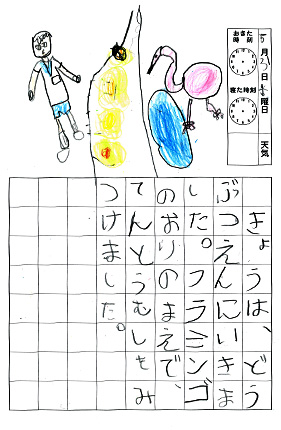 おきた時刻
5月27日 曜日
ねた時刻
天気
きょうは、どう
ぶつえんにいきま
した。フラミンゴ
のおりのまえで、
てんとうむしをみ
つけました。